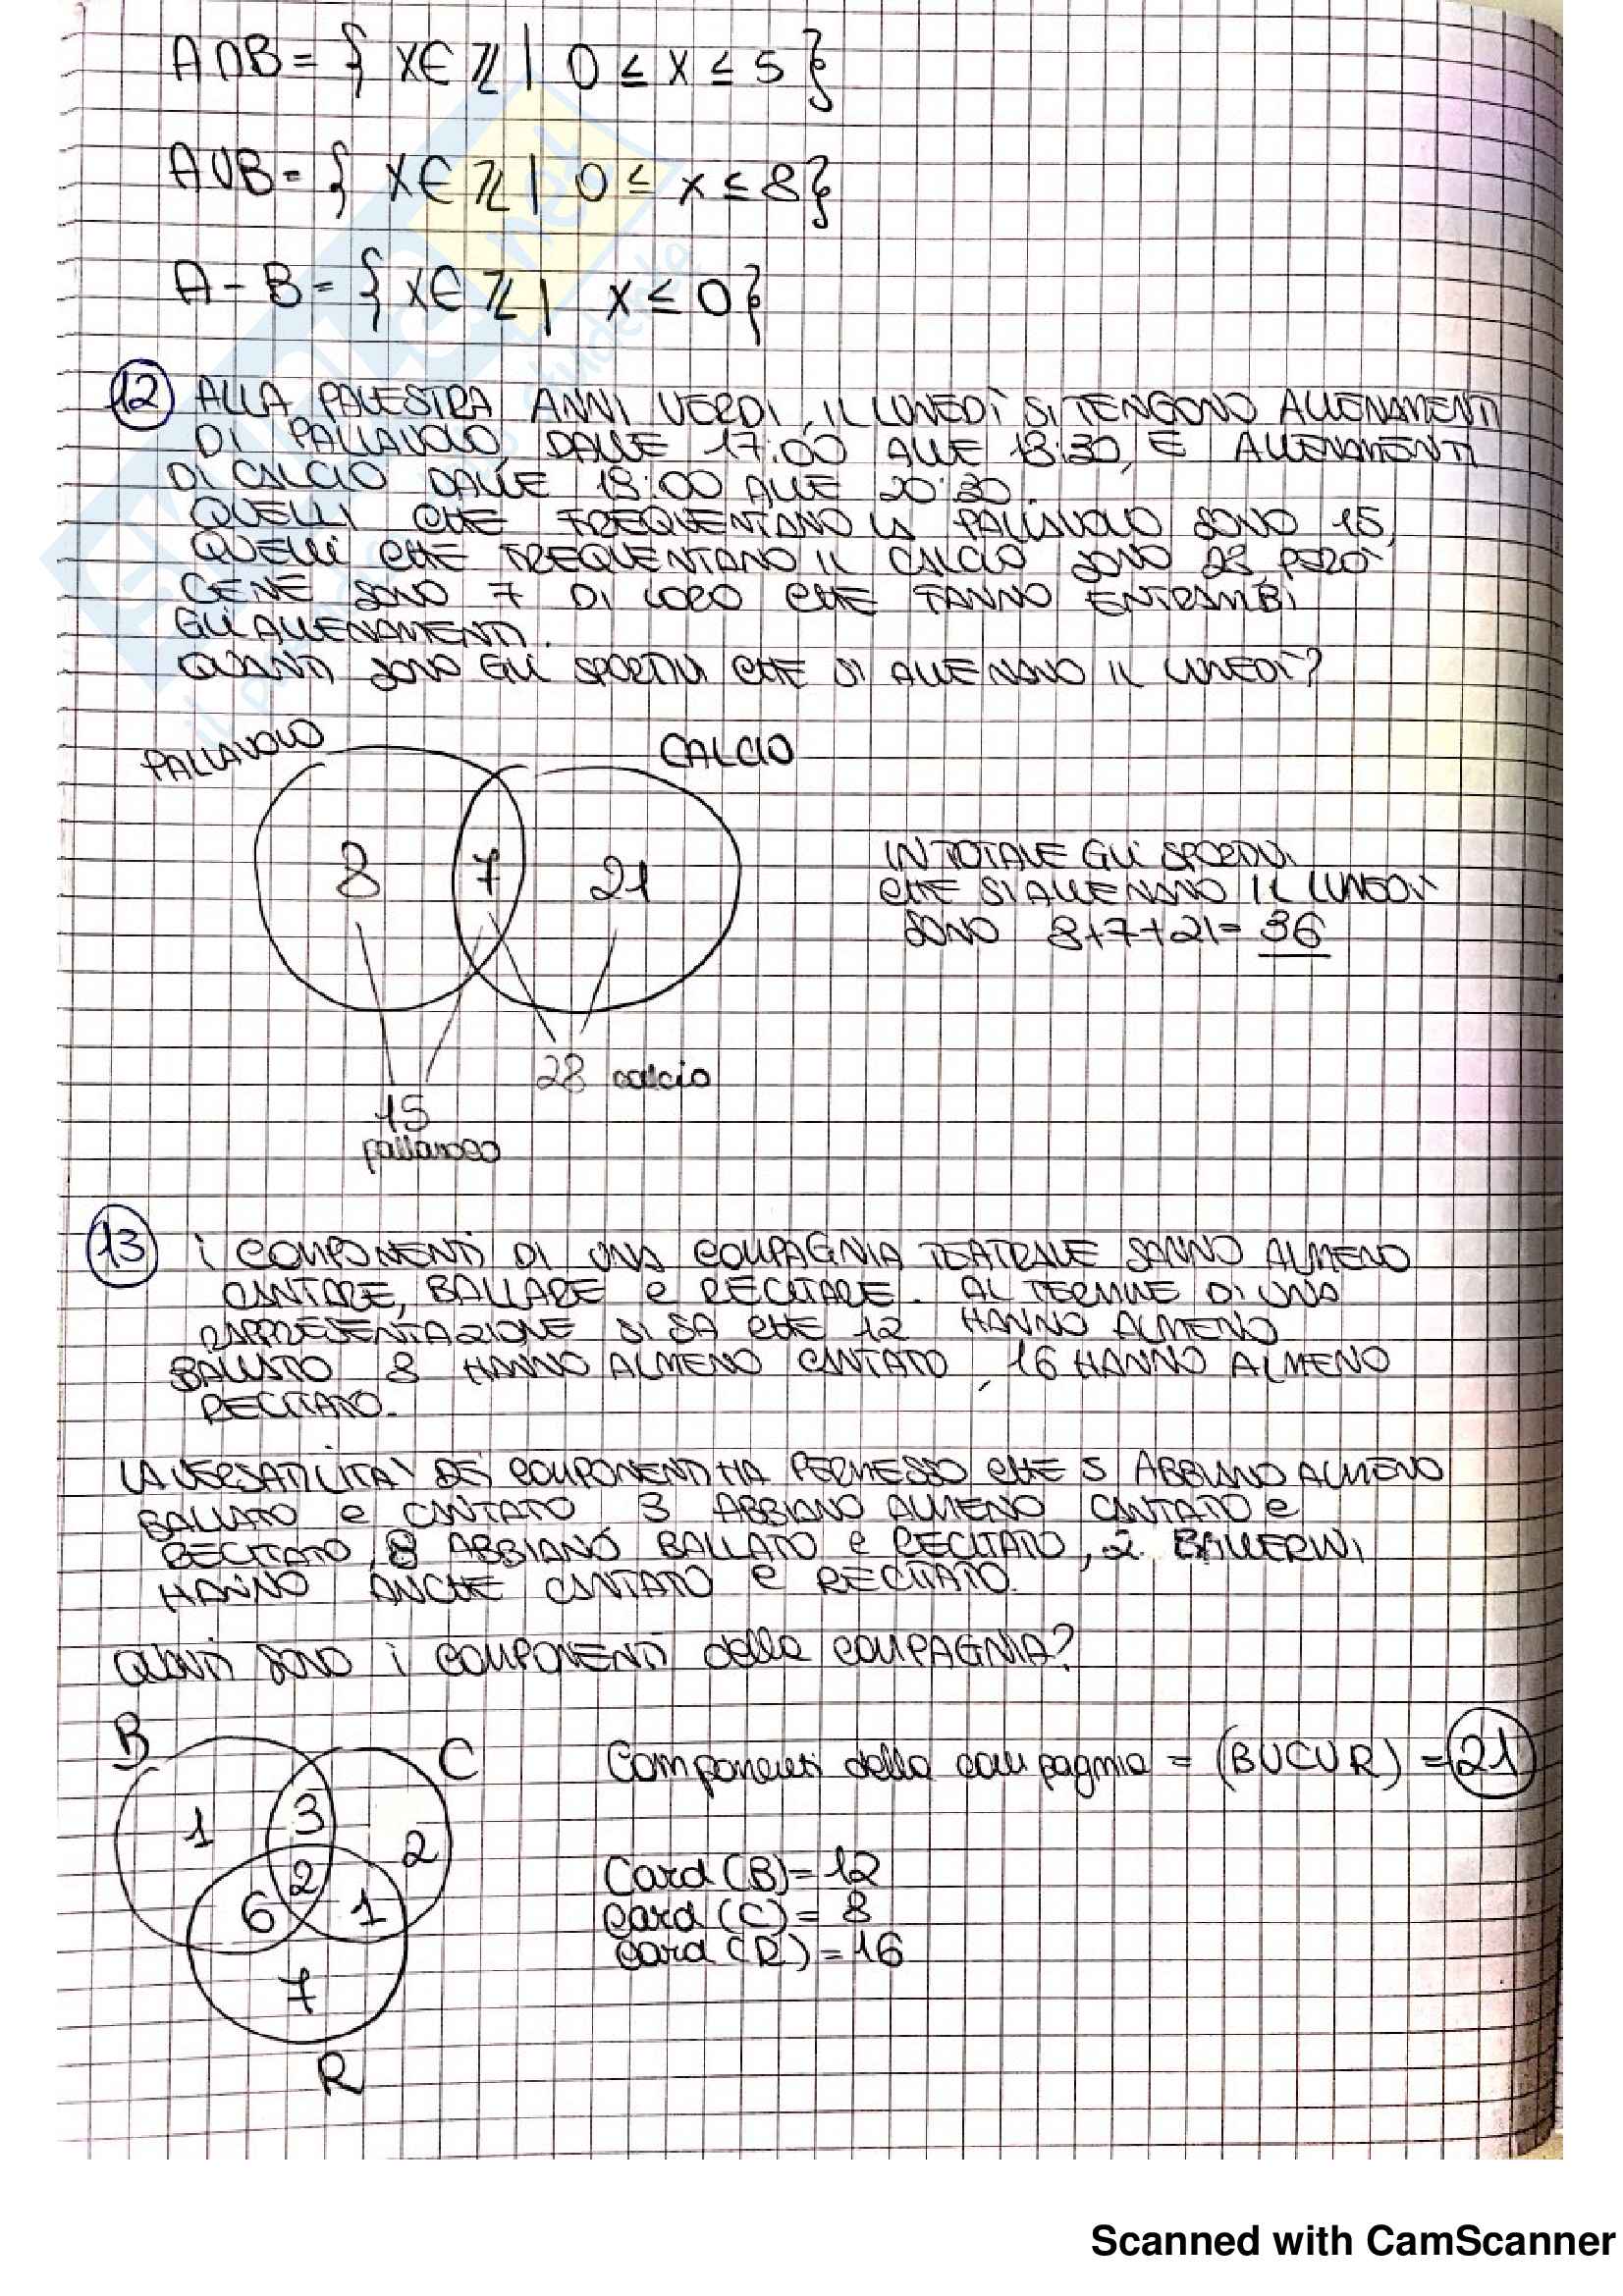 A∩B = { x∈ℤ | 0 ≤ x ≤ 5 }
A∪B = { x∈ℤ | 0 ≤ x ≤ 8 }
A - B = { x∈ℤ | x ≤ 0 }
12 ALLA PALESTRA ANNI VERDI, IL LUNEDÌ SI TENGONO ALLENAMENTI
DI PALLAVOLO, DALLE 17:00 ALLE 18:30, E ALLENAMENTI
DI CALCIO DALLE 19:00 ALLE 20:30.
QUELLI CHE FREQUENTANO LA PALLAVOLO SONO 15,
QUELLI CHE FREQUENTANO IL CALCIO SONO 28, PERÒ
CE NE SONO 7 DI LORO CHE FANNO ENTRAMBI
GLI ALLENAMENTI.
QUANTI SONO GLI SPORTIVI CHE SI ALLENANO IL LUNEDÌ?
PALLAVOLO
CALCIO
8 7 21
IN TOTALE GLI SPORTIVI
CHE SI ALLENANO IL LUNEDÌ
SONO 8+7+21= 36
28 calcio
15
pallavolo
13 I COMPONENTI DI UNA COMPAGNIA TEATRALE SANNO ALMENO
CANTARE, BALLARE e RECITARE. AL TERMINE DI UNA
RAPPRESENTAZIONE SI SA CHE 12 HANNO ALMENO
BALLATO 8 HANNO ALMENO CANTATO, 16 HANNO ALMENO
RECITATO.
LA VERSATILITA' DEI COMPONENTI HA PERMESSO CHE 5 ABBIANO ALMENO
BALLATO e CANTATO 3 ABBIANO ALMENO CANTATO e
RECITATO, 8 ABBIANO BALLATO e RECITATO, 2 BALLERINI
HANNO ANCHE CANTATO e RECITATO.
QUANTI SONO I COMPONENTI della COMPAGNIA?
B
C
1 3 2
2
6 1
7
R
Componenti della compagnia = (BUCUR) = 21
Card (B) = 12
card (C) = 8
card (R) = 16
Scanned with CamScanner